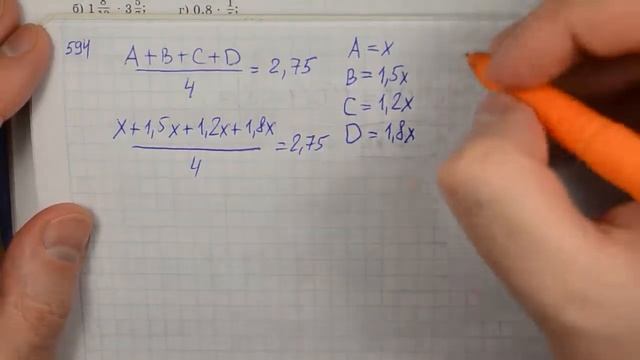 б) 1 8/ · 3 5/ г) 0,8 · 1/
594
(A+B+C+D)/4 = 2,75
A = x
B = 1,5x
C = 1,2x
D = 1,8x
(x+1,5x+1,2x+1,8x)/4 = 2,75